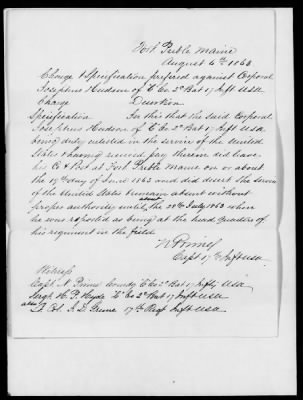 Fort Preble Maine
August 6th 1863
Charge & Specification preferred against Corporal
Josephus Hudson of "E" Co. 2d Bat 17 Inft USA
Charge Desertion
Specification In this that the said Corporal
Josephus Hudson of "E" Co. 2d Bat 17 Inft USA
being duly enlisted in the service of the United
States & having received pay therein did leave
his Co & Post at Fort Preble Maine on or about
the 17th day of June 1863 and did desert the service
of the United States & remain absent without
proper authority until the 28th July 1863 when
he was reported as being at the head quarters of
his regiment in the field
Capt 17 Inft USA
Witness
Capt. N. Prime Comdg E Co 2d Bat 17 Infty USA
Sergt. H. P. Hyde "E" Co 2d Bat 17 Inft USA
Lt. Col. J. D. Greene 17th Regt Inft USA